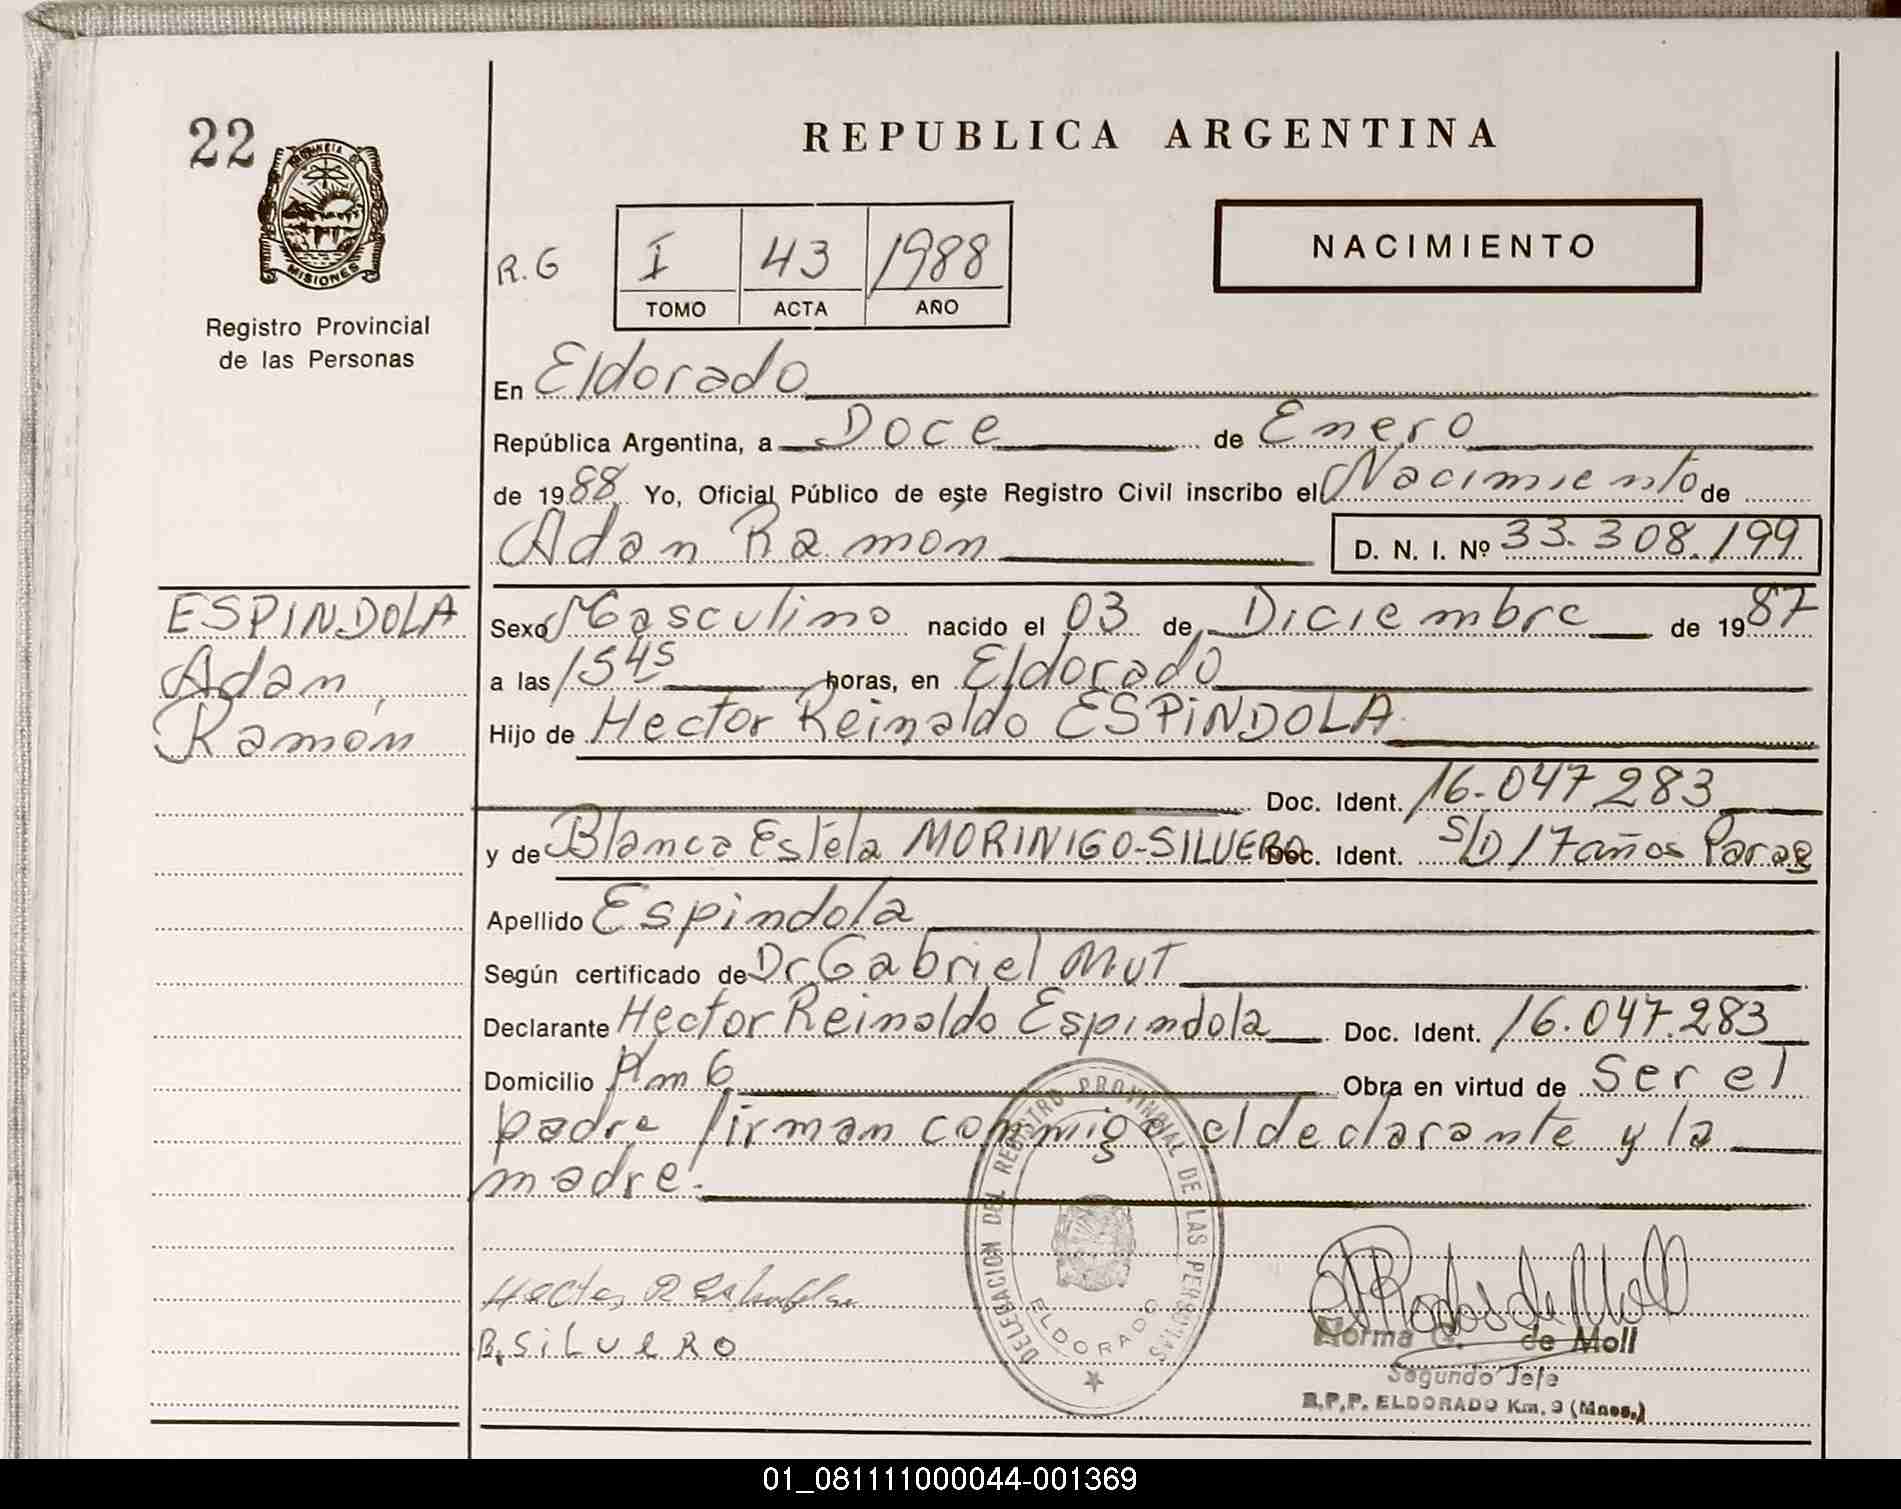 22
PROVINCIA DE
MISIONES
Registro Provincial
de las Personas
REPUBLICA ARGENTINA
R.G
I 43 1988
TOMO ACTA AÑO
NACIMIENTO
En Eldorado
República Argentina, a Doce de Enero
de 1988 Yo, Oficial Público de este Registro Civil inscribo el Nacimiento de
Adan Ramón D. N. I. Nº 33.308.199
ESPINDOLA
Adan
Ramón
Sexo Masculino nacido el 03 de Diciembre de 1987
a las 1545 horas, en Eldorado
Hijo de Hector Reinaldo ESPINDOLA
Doc. Ident. 16.047.283
y de Blanca Estela MORINIGO-SILVERO Doc. Ident. S/D 17 años Parag
Apellido Espindola
Según certificado de Dr Gabriel Mut
Declarante Hector Reinaldo Espindola Doc. Ident. 16.047.283
Domicilio Km 6 Obra en virtud de Ser el
padre firman conmigo el declarante y la
madre.
DELEGACION DEL REGISTRO PROVINCIAL DE LAS PERSONAS
ELDORADO
Hector R
B. SiLVeRO
Norma de Moll
Segundo Jefe
R.P.P. ELDORADO Km. 9 (Mnes.)
01_081111000044-001369